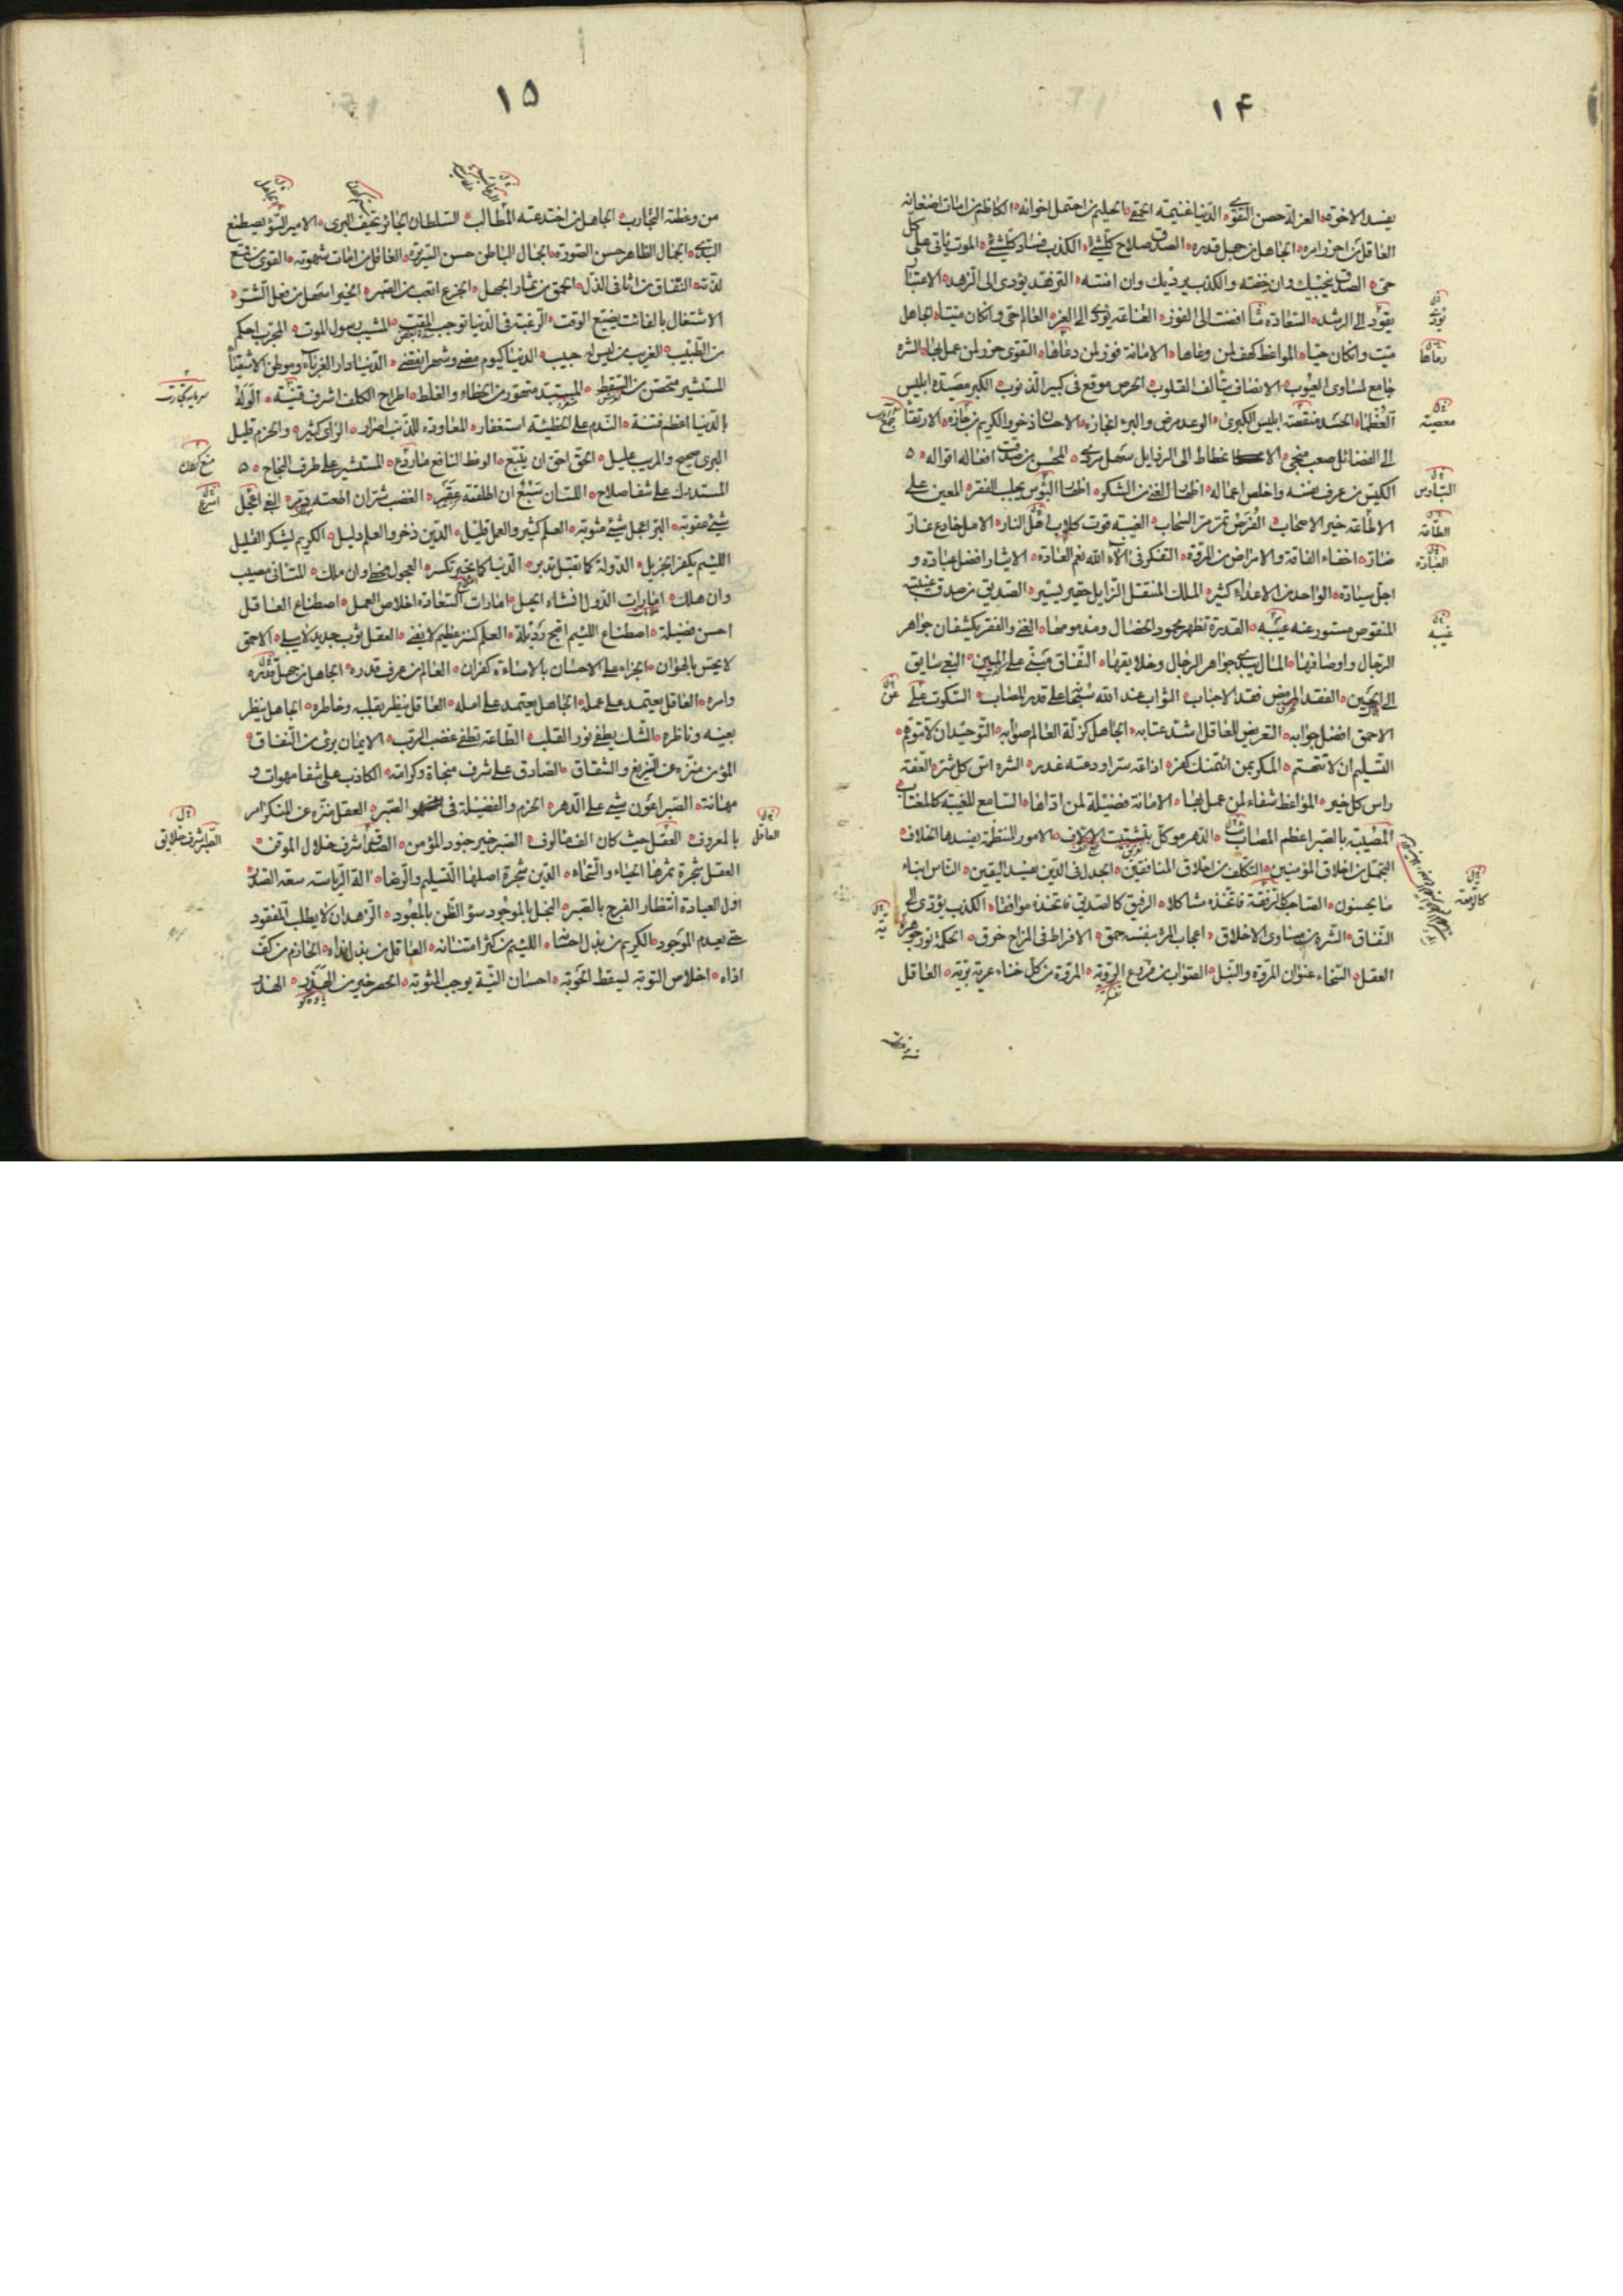 ١۴
يفسد الاخوة العزلة حصن التقوى الدنيا غنيمة الحمقى الحليم من احتمل اخوانه الكاظم من امات اضغانه
العاقل من احرز امره الجاهل من جهل قدره الصدق صلاح كل شئ الكذب فساد كل شئ الموت يأتى على كل
حى الصدق ينجيك وان خفته والكذب يرديك وان امنته التزهد يؤدى الى الزهد الاعتبار
يقود الى الرشد السعادة ما افضت الى الفوز القناعة تؤدى الى العز العالم حى وان كان ميتا الجاهل
ميت وان كان حيا المواعظ كهف لمن وعاها الامانة فوز لمن رعاها التقوى حرز لمن عمل بها الشره
جامع لمساوى العيوب الانصاف يألف القلوب الحرص موقع فى كبير الذنوب الكبر مصيدة ابليس
العظمى الحسد منقصة ابليس الكبرى الوعد مرض والبرء انجازه الاحسان ذخر والكريم من حازه الارتقاء
الى الفضائل صعب منجى الانحطاط الى الرذايل سهل مردى المحسن من صدقت افعاله اقواله
الكيس من عرف نفسه واخلص اعماله اظهار الغنى من الشكر اظهار البؤس يجلب الفقر المعين على
الطاعة خير الاصحاب الفرص تمر مر السحاب الغيبة قوت كلاب النار الامل خادع غار
ضار اخفاء الفاقة والامراض من المروة التفكر فى آلاء الله نعم العبادة الايثار افضل عبادة و
اجل سيادة الواحد من الاعداء كثير الملك المنتقل الزايل حقير يسير الصديق من صدق غيبته
المنقوص مستور عنه عيبه القدرة تظهر محمود الخصال ومذمومها الغنى والفقر يكشفان جواهر
الرجال واوصافها المال يبدى جواهر الرجال وخلايقها النفاق مبنى على المين البغى سايق
الى الحين الفقد الممرض فقد الاحباب الثواب عند الله سبحانه على قدر المصاب السكوت على
الاحمق افضل جوابه التعريض للعاقل اشد عتابه الجاهل كزلة العالم صوابه التوحيد ان لا تتوهم
التسليم ان لا تتهم المكر بمن ائتمنك كفر اذاعة سر اودعته غدر الشره اس كل شر العفة
راس كل خير المواعظ شفاء لمن عمل بها الامانة فضيلة لمن اداها السامع للغيبة كالمغتاب
المصيبة بالصبر اعظم المصاب الدهر موكل بتشتيت الالاف الامور المنتظمة يفسدها الخلاف
التجمل من اخلاق المؤمنين التكلف من اخلاق المنافقين الجدل فى الدين يفسد اليقين الناس ابناء
ما يحسنون الصاحب كالرقعة فاتخذه مشاكلا الرفيق كالصديق فاتخذه موافقا الكذب يؤدى الى
النفاق الشره من مساوى الاخلاق اعجاب المرء بنفسه حمق الافراط فى المزاح خرق الحكمة نور جوهره
العقل السخاء عنوان المروة والنبل الصواب من فروع الروية المروة من كل خناء عرية برية العاقل
تؤدى
رعاها
معصية
البتاؤس
الطاعة
العبادة
غيبه
عن
كالرقعة
من وعظته
١٥
من وعظته التجارب الجاهل من اختدعته المطالب السلطان الجائر يخيف البرى الامير السوء يصطنع
البذى الجمال الظاهر حسن الصورة الجمال الباطن حسن السريرة العاقل من امات شهوته القوى من قمع
لذته النفاق من اثافى الذل الحمق من ثمار الجهل الجزع اتعب من الصبر الخير اسهل من فعل الشر
الاشتغال بالفائت يضيع الوقت الرغبة فى الدنيا توجب المقت المشيب رسول الموت المجرب احكم
من الطبيب الغريب من ليس له حبيب الدنيا كيوم مضى وشهر انقضى الدنيا دار الغرباء وموطن الاشقياء
المستشير متحصن من السقط المستبد متهور من الخطاء والغلط اطراح الكلف اشرف قنية الوله
بالدنيا اعظم فتنة الندم على الخطيئة استغفار المعاودة للذنب اصرار الراى كثير والحزم قليل
البرى صحيح والمريب عليل الحق احق ان يتبع الوعظ النافع ما ردع المستشير على طرف النجاح
المستدرك على شفا صلاح اللسان سبع ان اطلقته عقر الغضب شر ان اطعته دمر البغى اعجل
شئ عقوبة البر اعجل شئ مثوبة العلم كثير والعمل قليل الدين ذخر والعلم دليل الكريم يشكر القليل
اللئيم يكفر الجزيل الدولة كما تقبل تدبر الدنيا كما تجبر تكسر العجول مخطى وان ملك المتانى مصيب
وان هلك امارات الدول انشاء الحيل امارات السعادة اخلاص العمل اصطناع العاقل
احسن فضيلة اصطناع اللئيم اقبح رذيلة العلم كنز عظيم لا يفنى العقل ثوب جديد لا يبلى الاحمق
لا يحس بالهوان الجزاء على الاحسان بالاساءة كفران العالم من عرف قدره الجاهل من جهل قدره
وامره العاقل يعتمد على عمله الجاهل يعتمد على امله العاقل ينظر بقلبه وخاطره الجاهل ينظر
بعينه وناظره الشك يطفئ نور القلب الطاعة تطفئ غضب الرب الايمان برئ من النفاق
المؤمن منزه عن الزيغ والشقاق الصادق على شرف منجاة وكرامة الكاذب على شفا مهوات و
مهانة الصبر اعون شئ على الدهر الحزم والفضيلة فى الصبر العقل منزه عن المنكر امر
بالمعروف العقل حيث كان الف مالوف الصبر خير جنود المؤمن الصدق اشرف خلال الموقن
العقل شجرة ثمرها الحياء والسخاء الدين شجرة اصلها التسليم والرضا آلة الرياسة سعة الصدر
اول العبادة انتظار الفرج بالصبر البخل بالموجود سوء الظن بالمعبود الزهد ان لا يطلب المفقود
حتى يعدم الموجود الكريم من بذل احسانه اللئيم من كثر امتنانه العاقل من بذل نداه الحازم من كف
اذاه اخلاص التوبة يسقط الحوبة احسان النية يوجب المثوبة الحصر خير من الهذر الهذر
سرمايه تجارت
اسرع
العاقل
الصبر اشرف خلايق